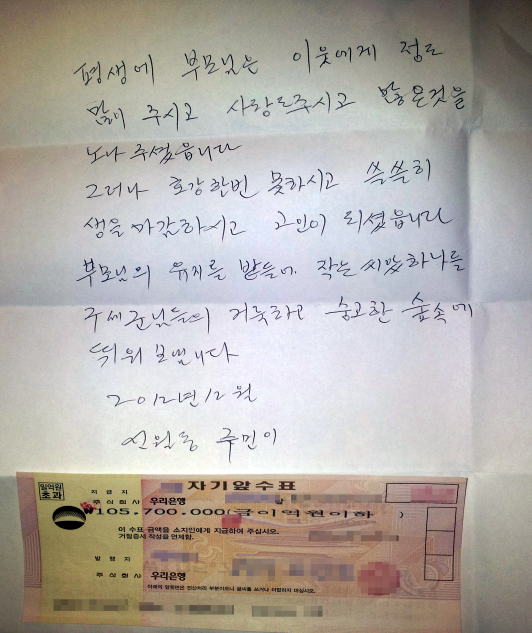 평생에 부모님은 이웃에게 정도
많이 주시고 사랑도주시고 많은것을
노나 주셨읍니다
그러나 호강한번 못하시고 쓸쓸히
생을마감하시고 고인이 되셨읍니다
부모님의 유지를 받들어 작는 씨앗하나를
구세군님들의 거룩하고 숭고한 숲속에
띄워 보냅니다
2012년12월
신월동 주민이
일억원
초과
자기앞수표
지급지
주식회사 우리은행
₩105.700.000(금이억원이하)
이 수표 금액을 소지인에게 지급하여 주십시오.
거절증서 작성을 면제함.
발행지
주식회사 우리은행